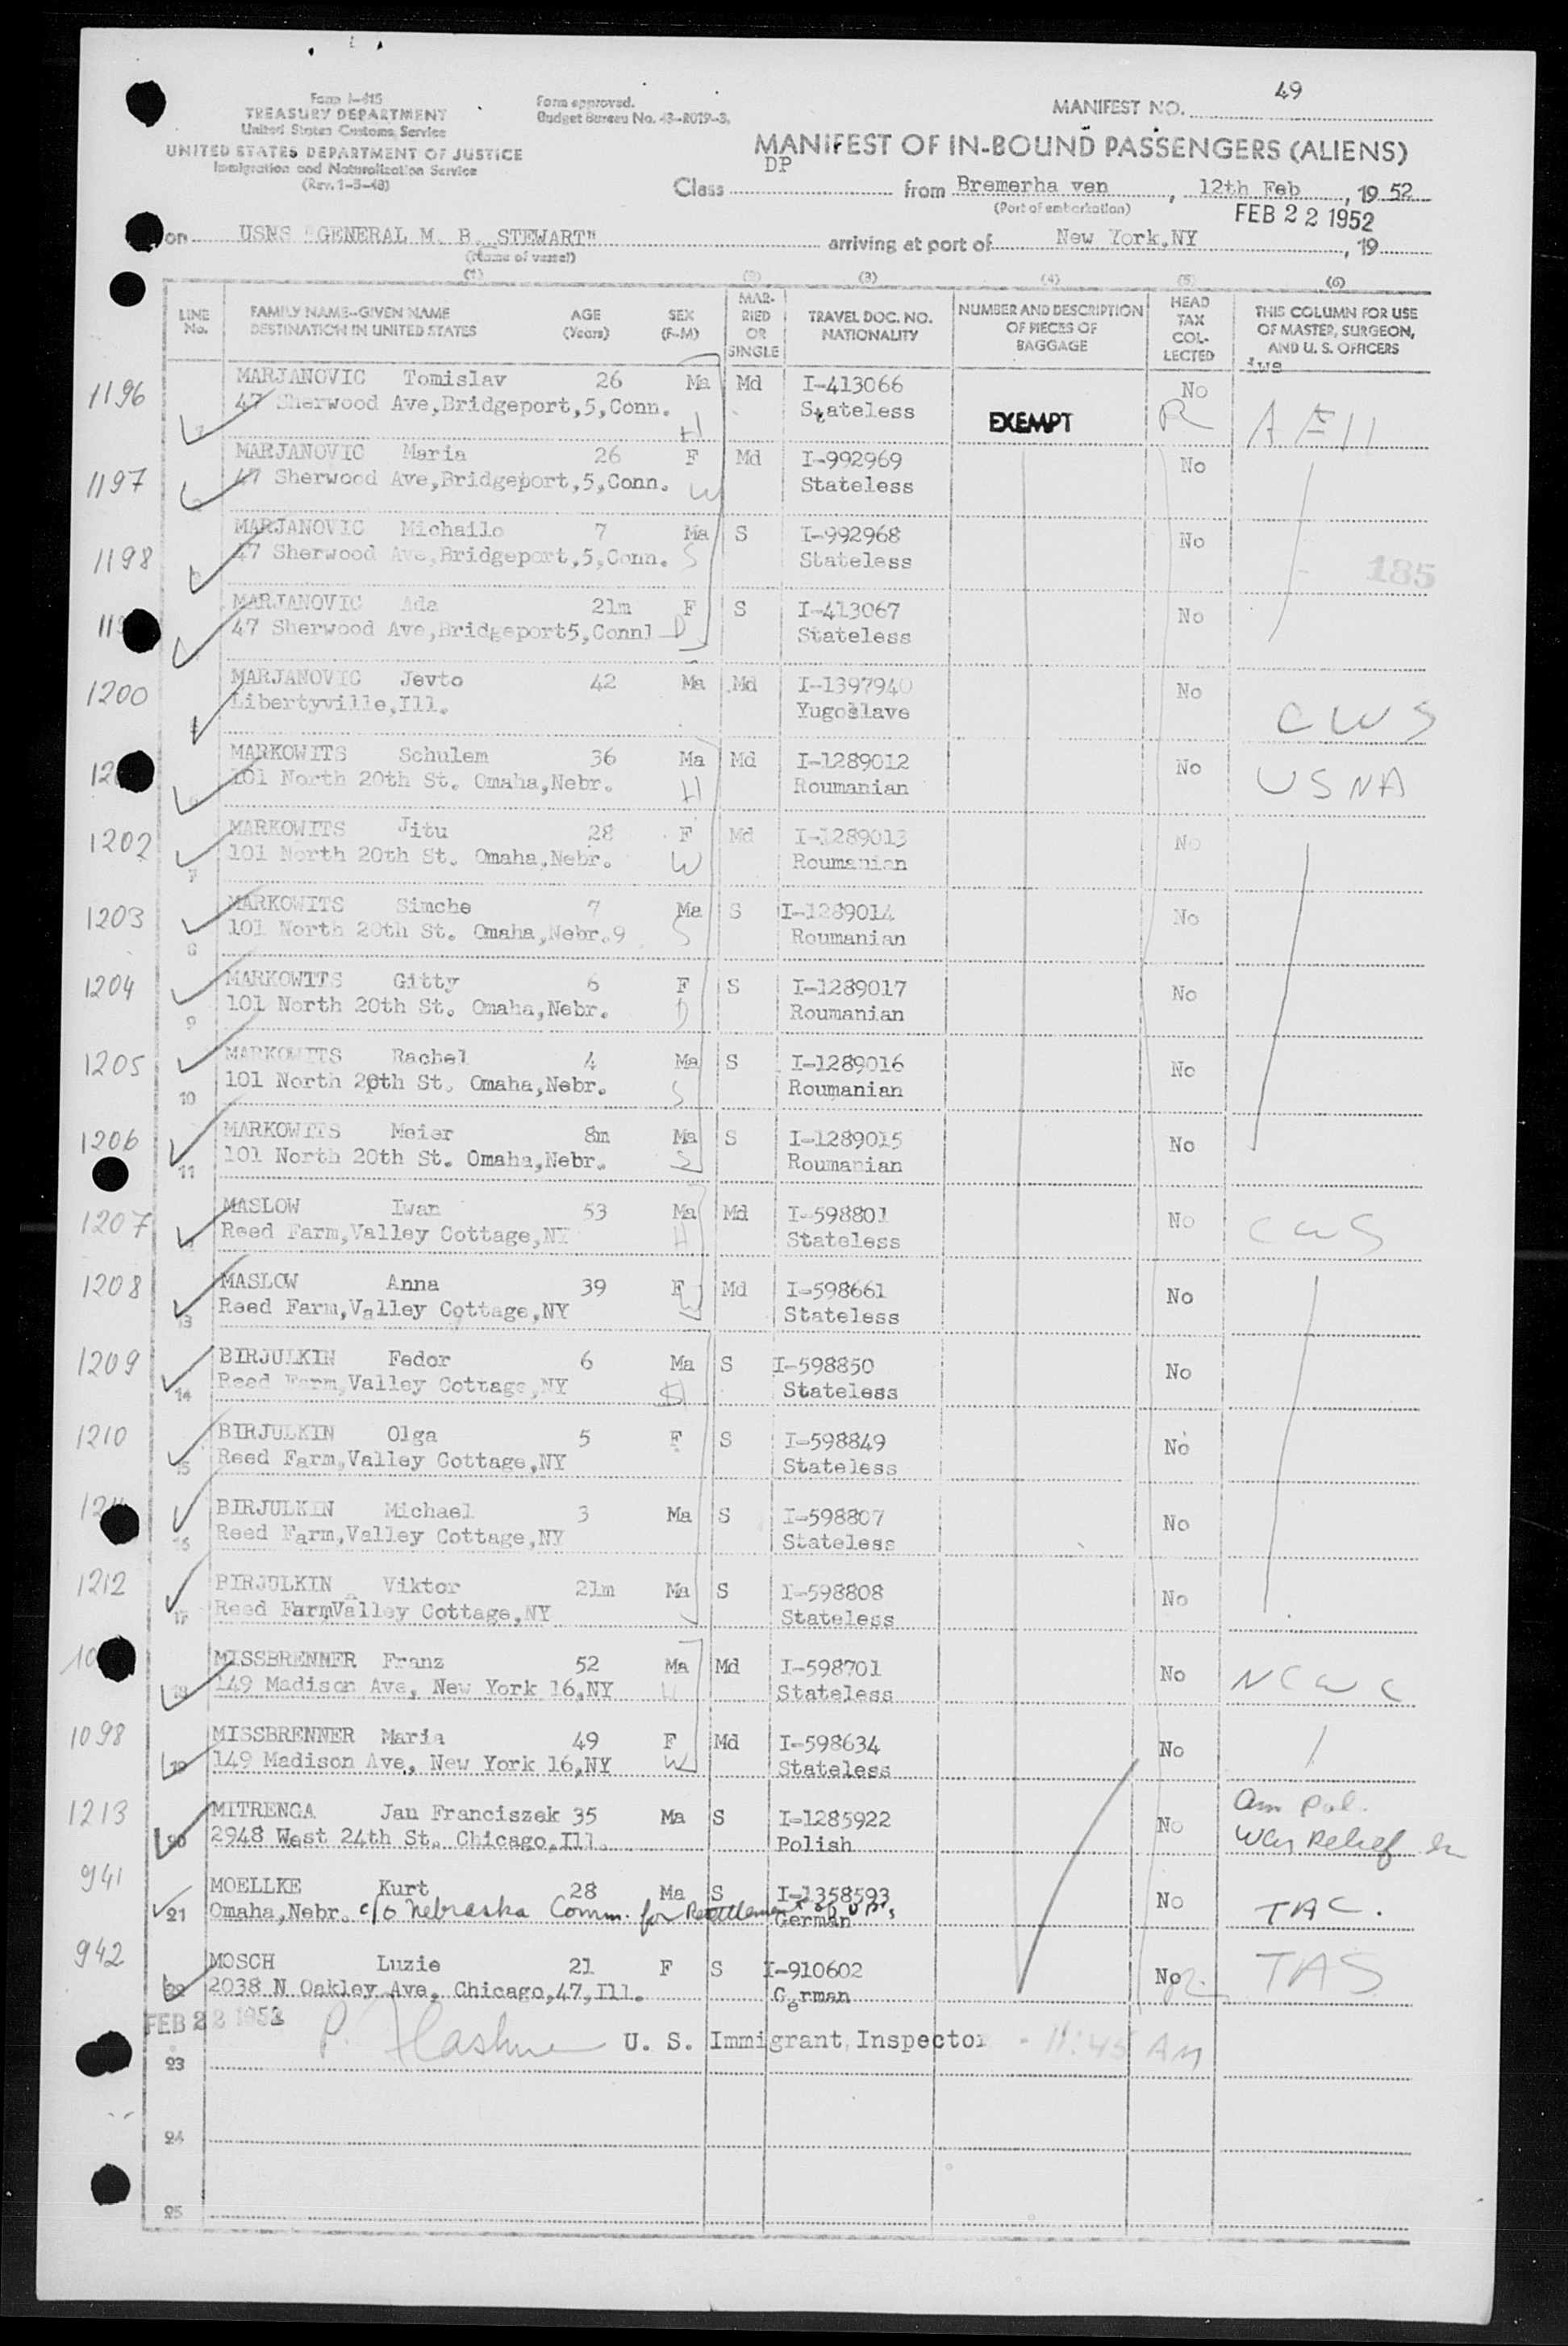 Form I-415
TREASURY DEPARTMENT
United States Customs Service
UNITED STATES DEPARTMENT OF JUSTICE
Immigration and Naturalization Service
(Rev. 1-5-48)
Form approved.
Budget Bureau No. 43-R019-3.
MANIFEST NO. 49
MANIFEST OF IN-BOUND PASSENGERS (ALIENS)
Class DP from Bremerha ven, 12th Feb, 19 52
(Port of embarkation)
FEB 22 1952
on USNS "GENERAL M. B. STEWART" arriving at port of New York,NY, 19
(Name of vessel)
(1) (2) (3) (4) (5) (6)
LINE No. FAMILY NAME--GIVEN NAME DESTINATION IN UNITED STATES AGE (Years) SEX (F-M) MARRIED OR SINGLE TRAVEL DOC. NO. NATIONALITY NUMBER AND DESCRIPTION OF PIECES OF BAGGAGE HEAD TAX COLLECTED THIS COLUMN FOR USE OF MASTER, SURGEON, AND U. S. OFFICERS
1196 MARJANOVIC Tomislav 26 Ma Md I-413066 No
47 Sherwood Ave,Bridgeport,5,Conn. H Stateless EXEMPT R
1197 MARJANOVIC Maria 26 F Md I-992969 No
47 Sherwood Ave,Bridgeport,5,Conn. W Stateless
1198 MARJANOVIC Michailo 7 Ma S I-992968 No
47 Sherwood Ave,Bridgeport,5,Conn. S Stateless 185
MARJANOVIC Ada 21m F S I-413067 No
47 Sherwood Ave,Bridgeport5,Connl D Stateless
1200 MARJANOVIC Jevto 42 Ma Md I-1397940 No
Libertyville,Ill. Yugoslave CWS
MARKOWITS Schulem 36 Ma Md I-1289012 No
101 North 20th St. Omaha,Nebr. H Roumanian USNA
1202 MARKOWITS Jitu 28 F Md I-1289013 No
7 101 North 20th St. Omaha,Nebr. W Roumanian
1203 MARKOWITS Simche 7 Ma S I-1289014 No
8 101 North 20th St. Omaha,Nebr.9 S Roumanian
1204 MARKOWITS Gitty 6 F S I-1289017 No
9 101 North 20th St. Omaha,Nebr. D Roumanian
1205 MARKOWITS Rachel 4 Ma S I-1289016 No
10 101 North 20th St. Omaha,Nebr. S Roumanian
1206 MARKOWITS Meier 8m Ma S I-1289015 No
11 101 North 20th St. Omaha,Nebr. S Roumanian
1207 MASLOW Iwan 53 Ma Md I-598801 No CWS
Reed Farm,Valley Cottage,NY H Stateless
1208 MASLOW Anna 39 F Md I-598661 No
13 Reed Farm,Valley Cottage,NY W Stateless
1209 BIRJULKIN Fedor 6 Ma S I-598850 No
14 Reed Farm,Valley Cottage,NY Stateless
1210 BIRJULKIN Olga 5 F S I-598849 No
15 Reed Farm,Valley Cottage,NY Stateless
BIRJULKIN Michael 3 Ma S I-598807 No
16 Reed Farm,Valley Cottage,NY Stateless
1212 BIRJULKIN Viktor 21m Ma S I-598808 No
17 Reed FarmValley Cottage,NY Stateless
MISSBRENNER Franz 52 Ma Md I-598701 No NCWC
18 149 Madison Ave, New York 16,NY H Stateless
1098 MISSBRENNER Maria 49 F Md I-598634 No
19 149 Madison Ave, New York 16,NY W Stateless
1213 MITRENGA Jan Franciszek 35 Ma S I-1285922 No Am Pol.
20 2948 West 24th St. Chicago,Ill. Polish War Relief
941 MOELLKE Kurt 28 Ma S I-1358593 No
21 Omaha,Nebr. c/o Nebraska Comm. for Resettlement of DPs German TAC.
942 MOSCH Luzie 21 F S I-910602 No TAS
22 2038 N Oakley Ave. Chicago,47,Ill. German
FEB 22 1952
U. S. Immigrant Inspector - 11:45 AM
23
24
25